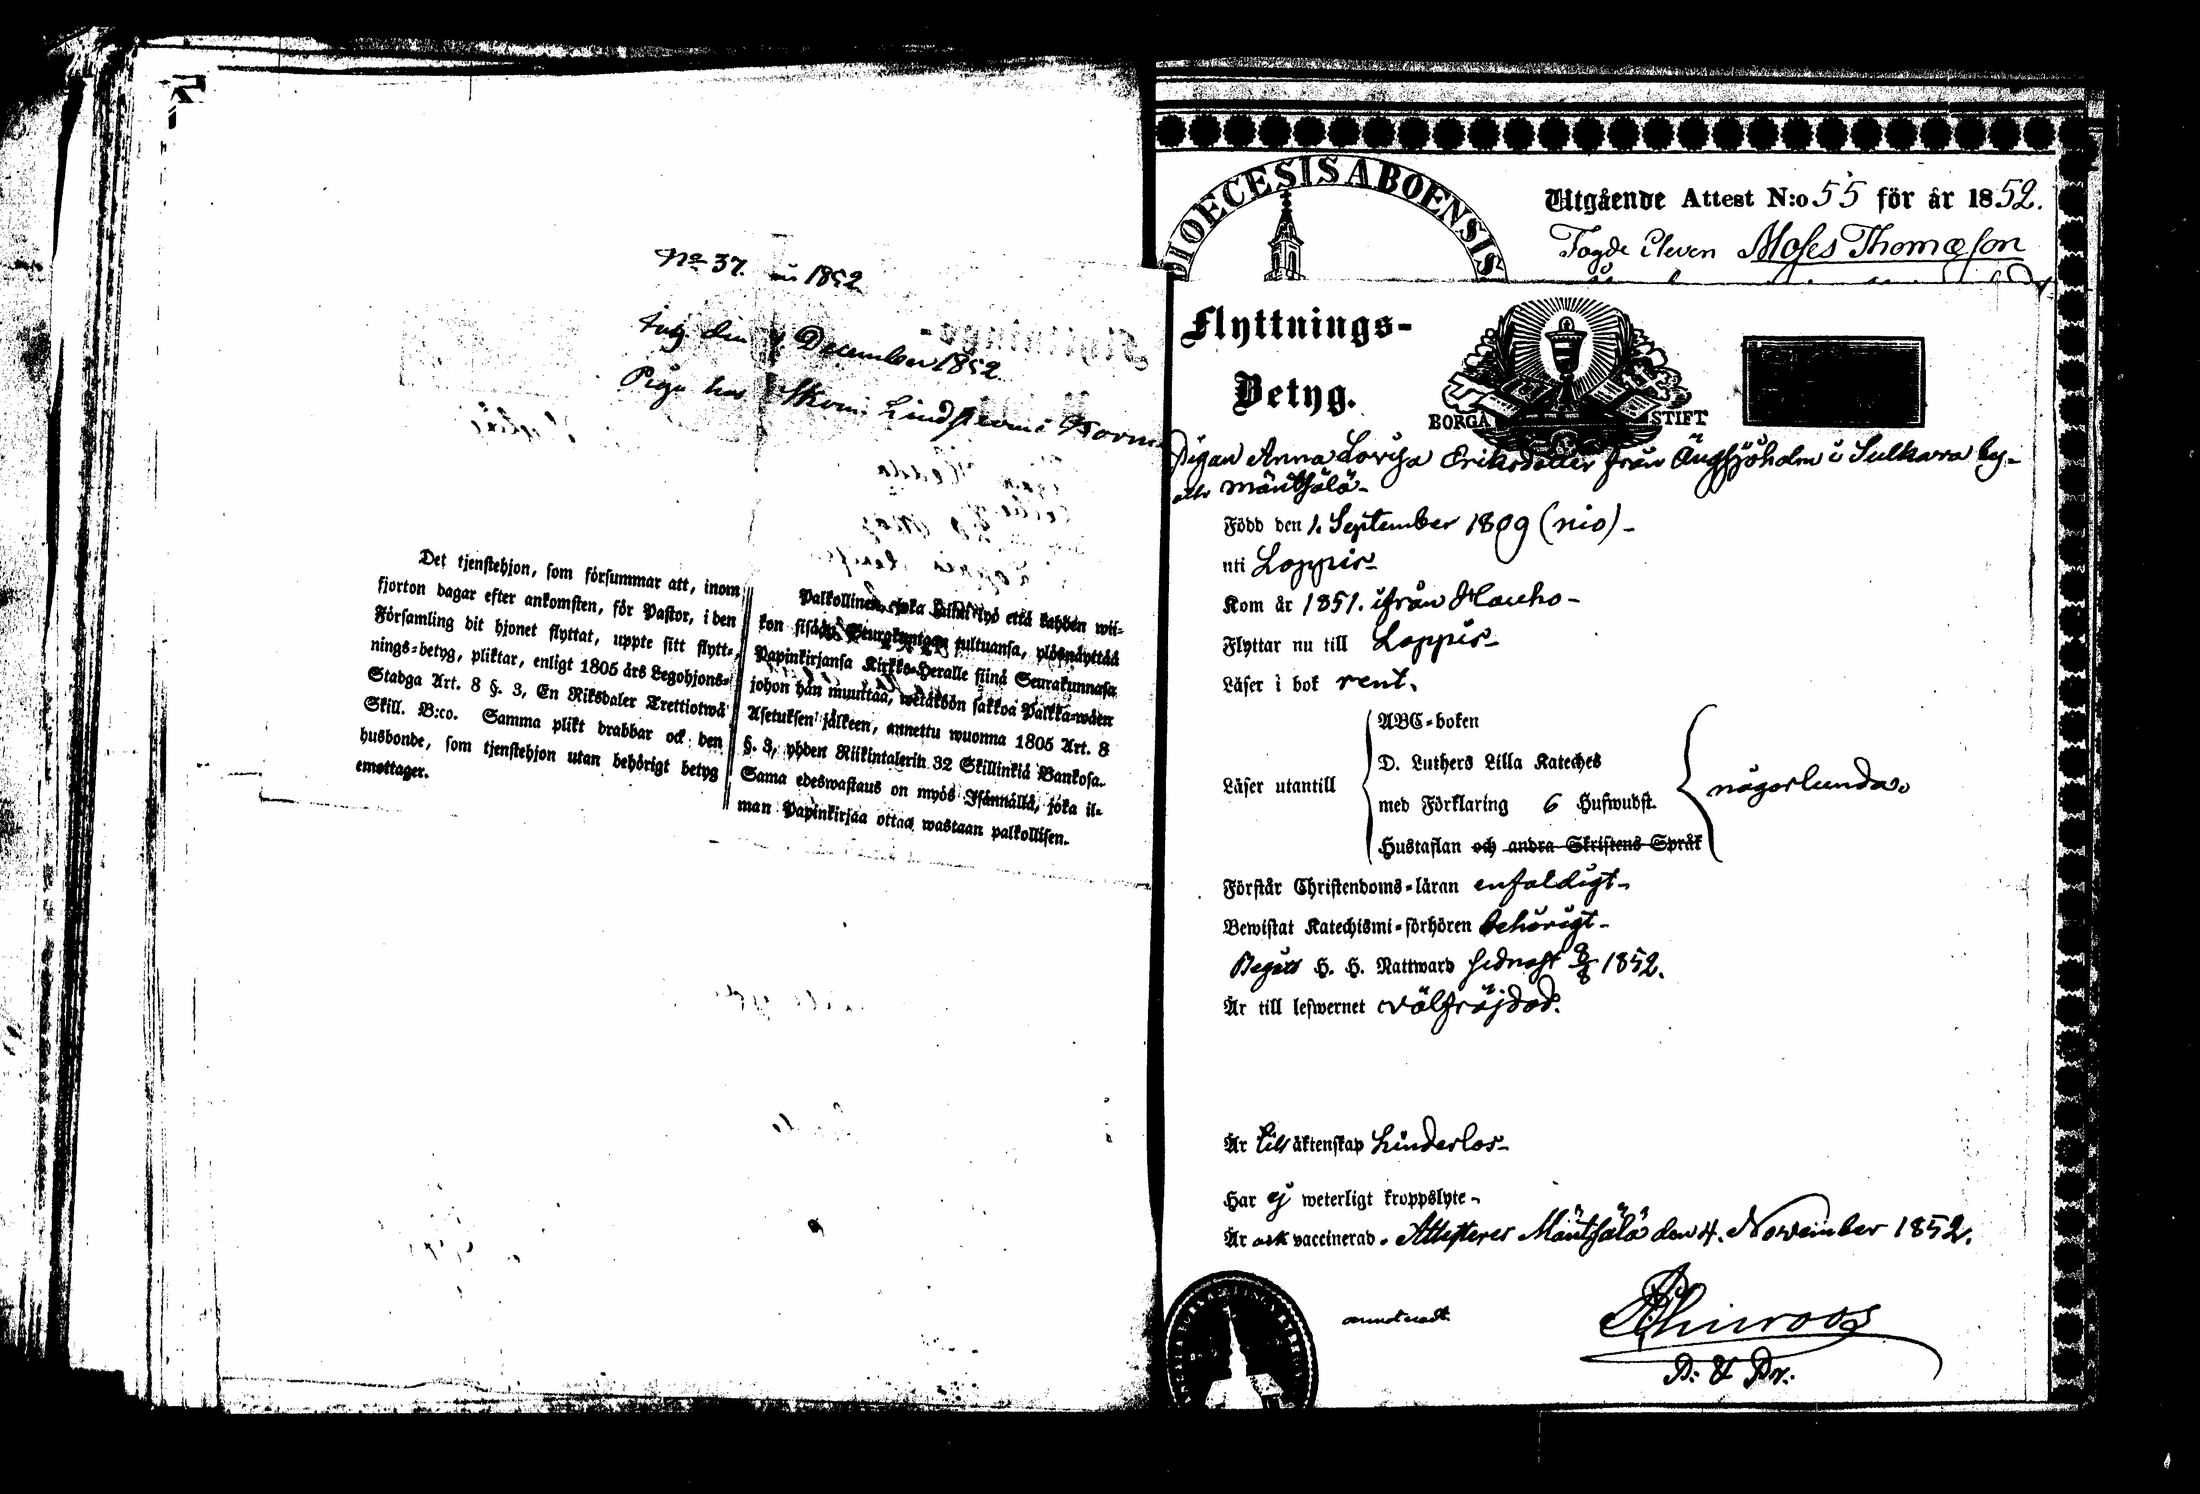 No 37. 1852
Ing. den 4. December 1852
Piga hos Skom. Lindstroms
Det tjenstehjon, som försummar att, inom
fjorton dagar efter ankomsten, för Pastor, i den
Församling dit hjonet flyttat, uppte sitt flytt-
nings-betyg, pliktar, enligt 1805 års Legohjons-
Stadga Art. 8 §. 3, En Riksdaler Trettiotwå
Skill. B:co. Samma plikt drabbar ock den
husbonde, som tjenstehjon utan behörigt betyg
emottager.
Palkollinen, joka laimi lyö että kahden wii-
kon sisään Seurakuntaan tultuansa, ylösnäyttää
Papinkirjansa Kirkko-Heralle siinä Seurakunnasa
johon hän muuttaa, wetäköön sakkoa Palkka-wäen
Asetuksen jälkeen, annettu wuonna 1805 Art. 8
§. 3, yhden Riikintalerin 32 Skillinkiä Bankosa.
Sama edeswastaus on myös Isännällä, joka il-
man Papinkirjaa ottaa wastaan palkollisen.
DIOECESIS ABOENSIS
Utgående Attest N:o 55 för år 1852.
Fogde Eleven Moses Thomæson
Flyttnings-
Betyg.
BORGÅ STIFT
Pigan Anna Lovisa Eriksdotter från Ängsjöholm i Sulkava by
Mäntsälä
Född den 1. September 1809 (nio)
uti Loppis
Kom år 1851. ifrån Hauho
Flyttar nu till Loppis
Läser i bok rent.
Läser utantill
ABC-boken
D. Luthers Lilla Kateches
med Förklaring 6 Hufwudst.
Hustaflan och andra Skriftens Språk
någorlunda.
Förstår Christendoms-läran enfaldigt
Bewistat Katechismi-förhören behörigt
Begått H. H. Nattward sednast 8/8 1852.
Är till lefwernet välfräjdad.
Är till äktenskap hinderlös
Har ej weterligt kroppslyte
Är ock vaccinerad. Attesterer Mäntsälä den 4. November 1852.